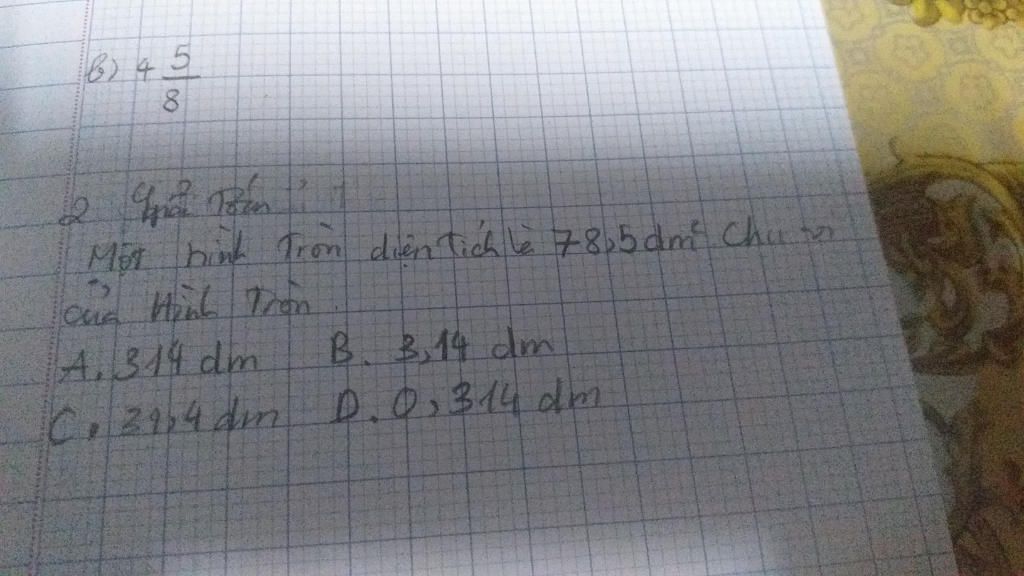 b) 4 5/8
2 Giải Toán
Một hình Tròn diện tích là 78,5 dm² Chu vi
của Hình Tròn.
A. 314 dm B. 3,14 dm
C. 31,4 dm D. 0,314 dm